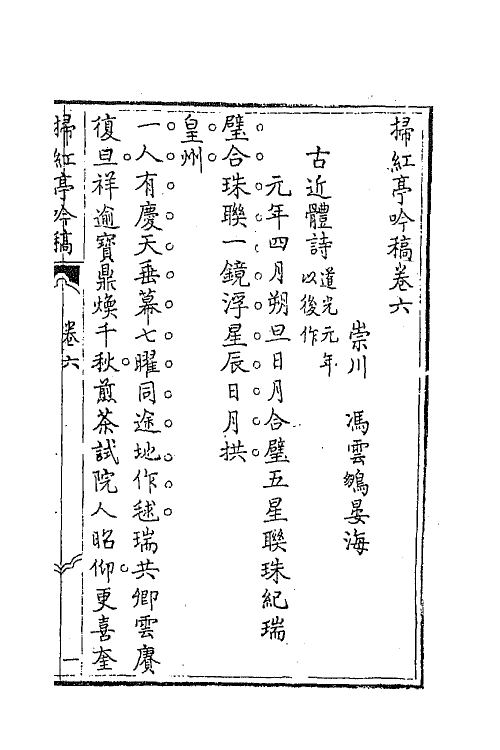 掃紅亭吟稿卷六
崇川　馮雲鵷晏海
古近體詩道光元年以後作
元年四月朔旦日月合璧五星聯珠紀瑞
璧合珠聯一鏡浮星辰日月拱
皇州
一人有慶天垂幕七曜同途地作毬瑞共卿雲賡
復旦祥逾寶鼎煥千秋煎茶試院人昭仰更喜奎
掃紅亭吟稿　卷六　一